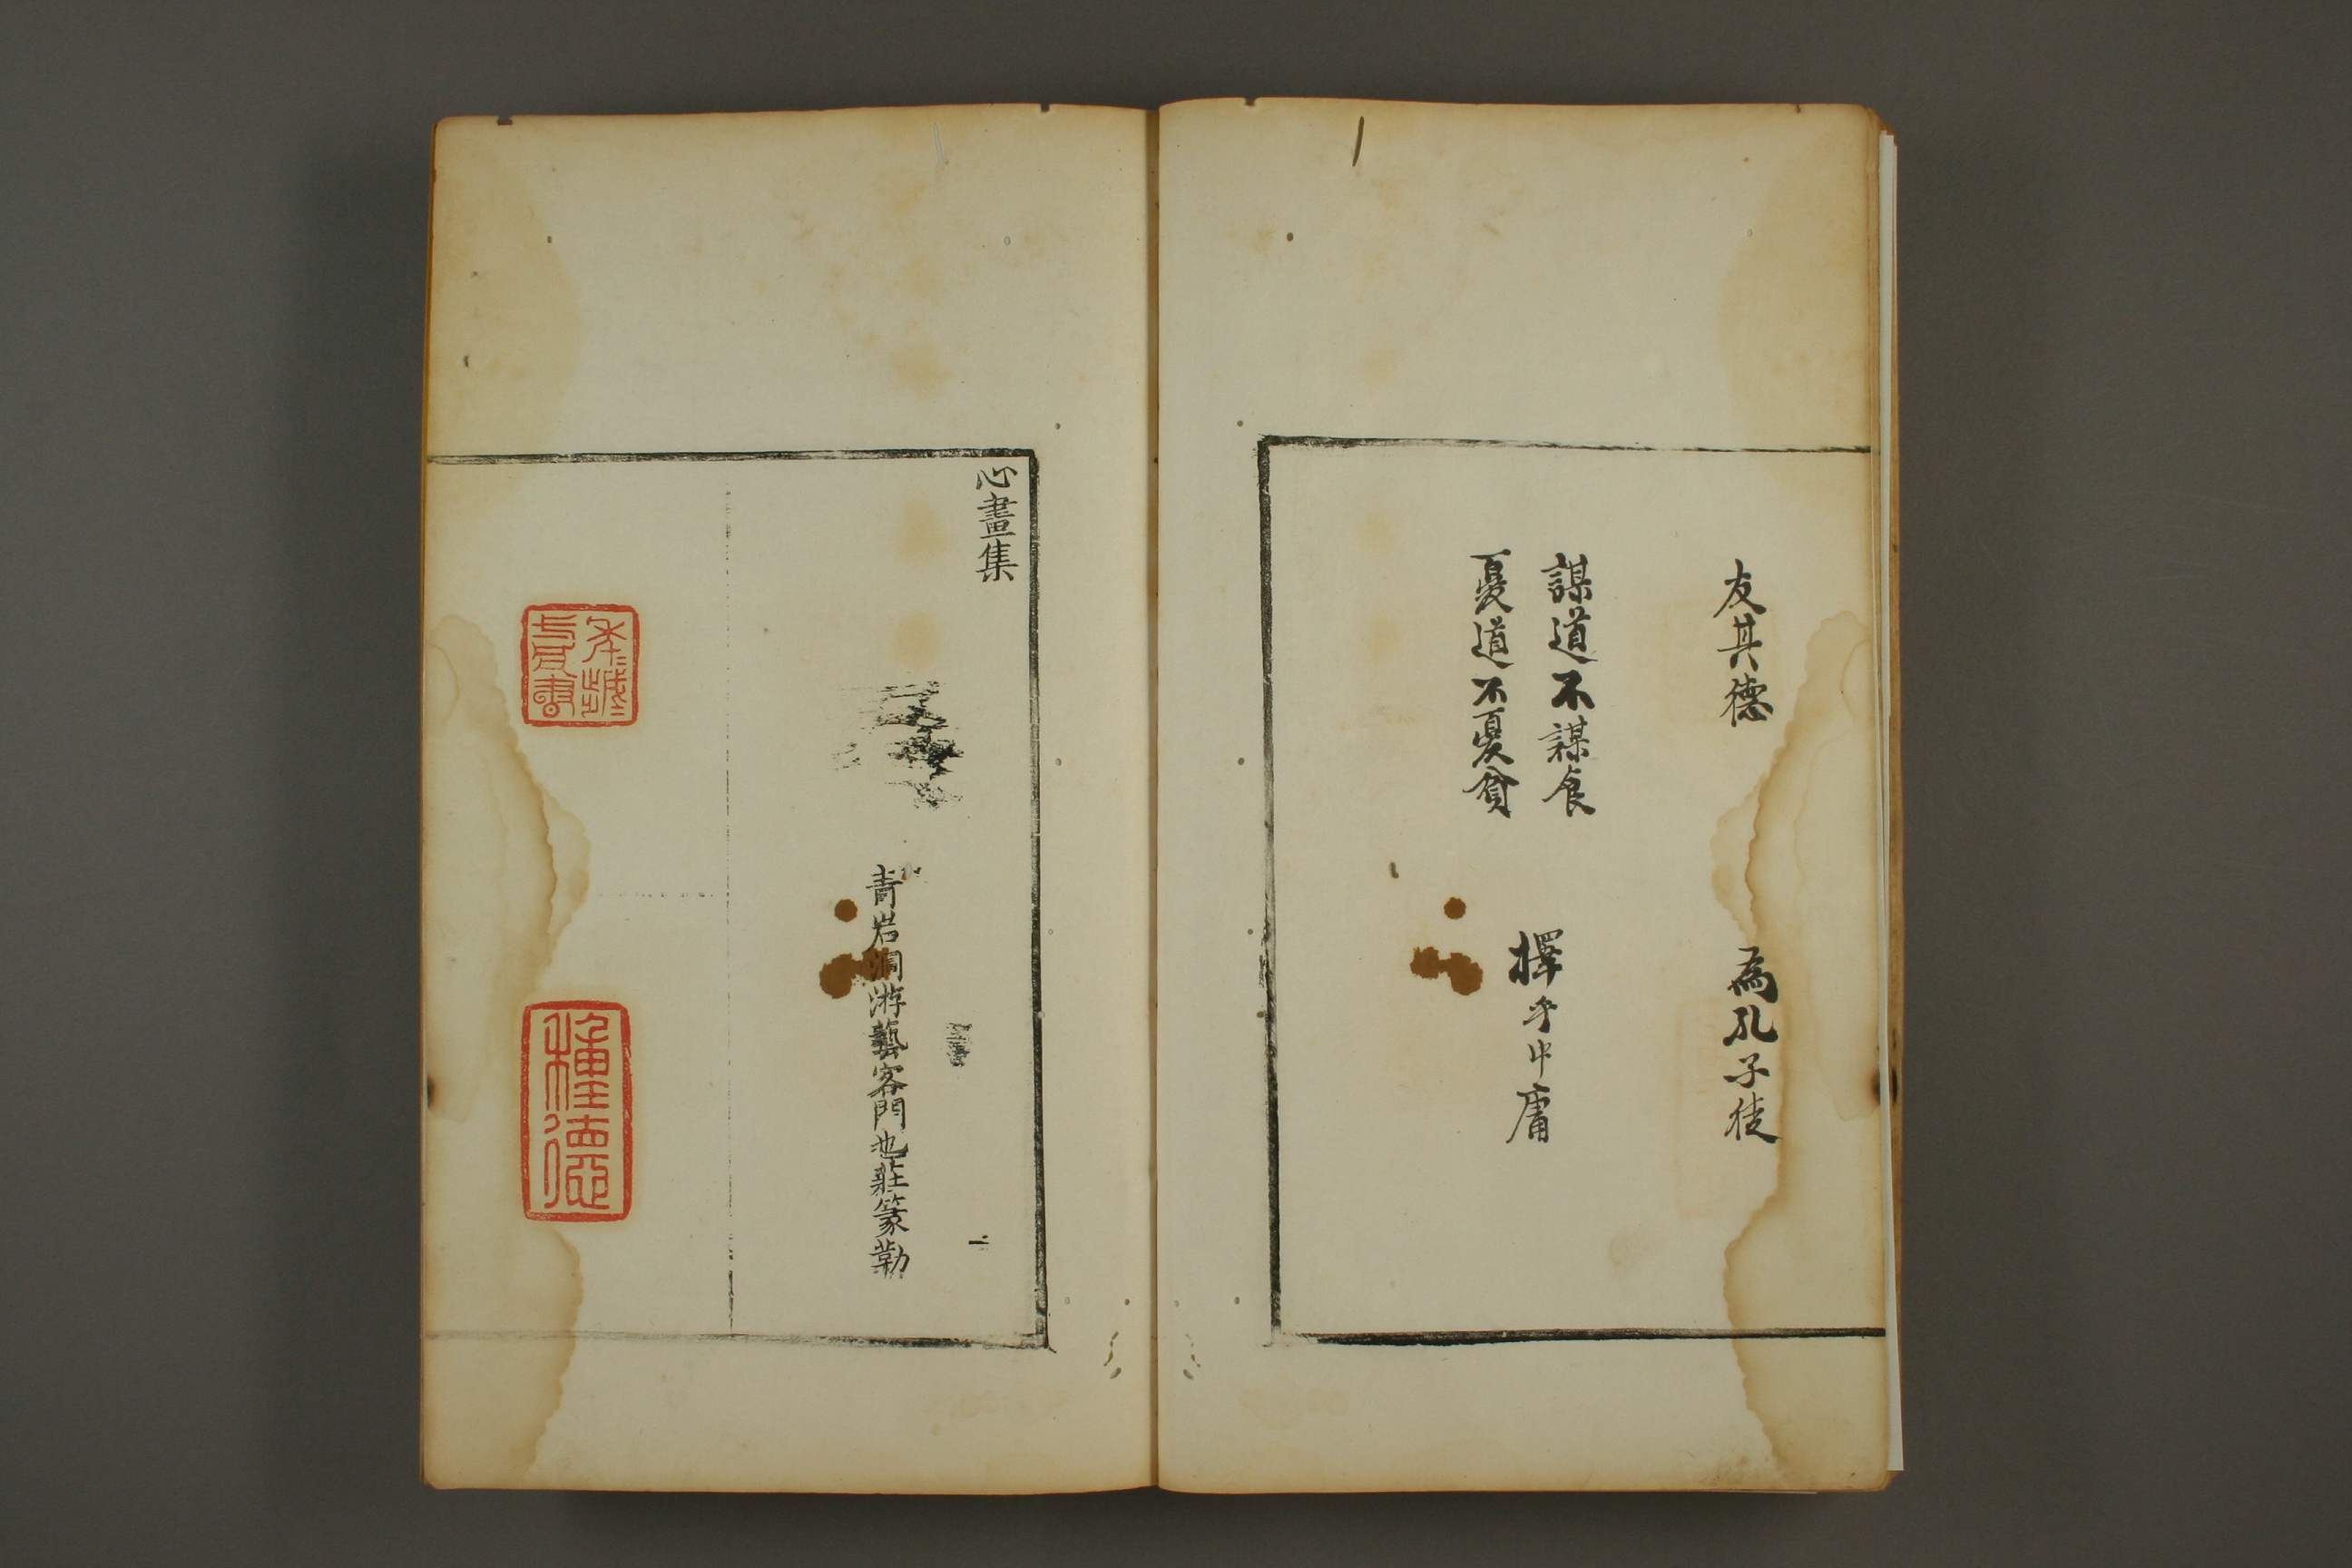 友其德
為孔子徒
謀道不謀食
憂道不憂貧
擇乎中庸
心畫集
青岩洞游藝客門也莊篆勒
種德